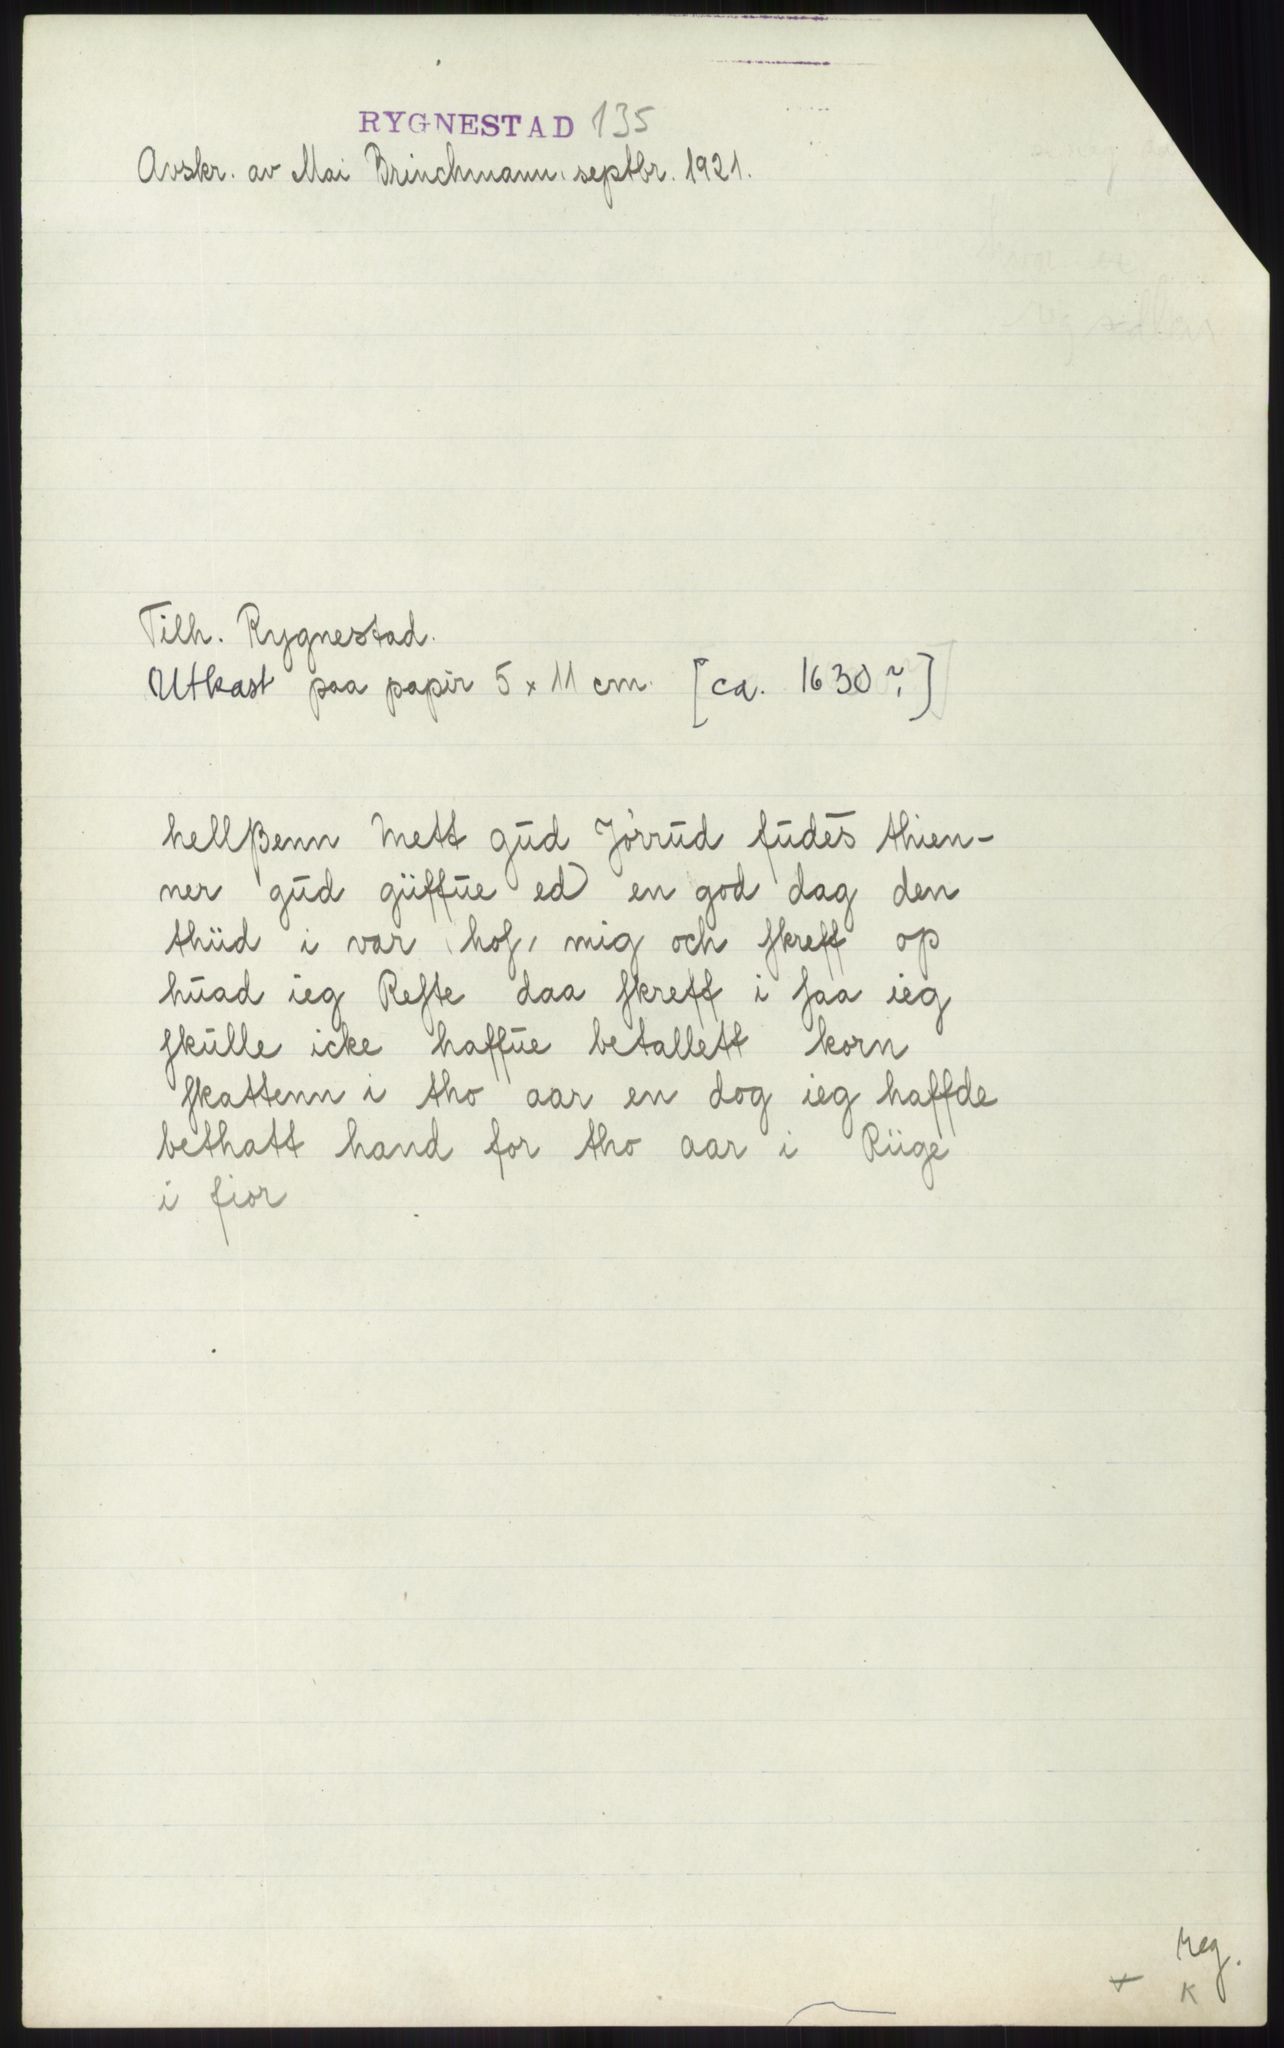 RYGNESTAD 135
Avskr. av Mai Brinchmann, septbr. 1921.
Tilh. Rygnestad.
Utkast paa papir 5 x 11 cm. [ca. 1630?]
hellßenn mett gūd Jörrūd fūdes thien-
ner gūd güffūe ed en god dag den
thüd i var hoſ mig och ſkreff op
hūad ieg Reſte daa ſkreff i ſaa ieg
ſkūlle icke haffūe betallett korn
ſkattenn i tho aar en dog ieg haffde
bethatt hand for tho aar i Rüge
i fior
reg.
x K